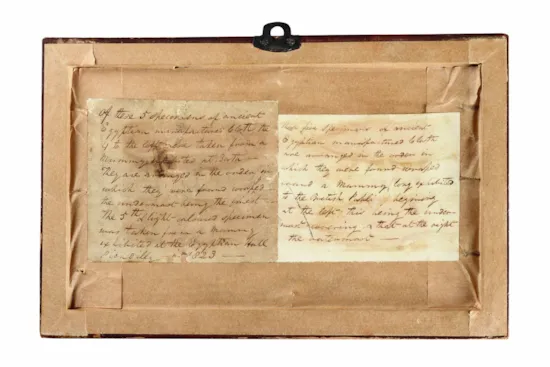 Of these 5 specimens of ancient
Egyptian manufactured Cloth the
4 to the left were taken from a
Mummy at
They are arranged in the order in
which they were found wrapped
the undermost being the finest
The 5th light colored specimen
was taken from a Mummy
exhibited at the Egyptian Hall
1823
five specimens of ancient
Egyptian manufactured Cloth
are arranged in the order in
which they were found wrapped
round a Mummy, long exhibited
to the British Public, beginning
at the left, this being the under
most covering & that at the right
the outermost